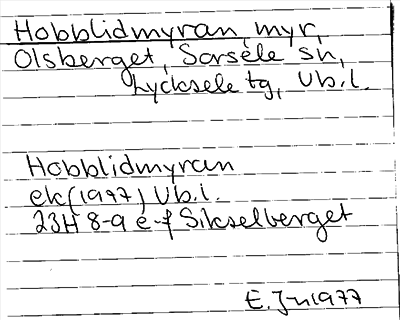 Hobblidmyran, myr,
Olsberget, Sorsele sn,
Lycksele tg, Vb.l.
Hobblidmyran
ek (1997) Vb.l.
23H 8-9 e-f Sikselberget
E.Jn 1977